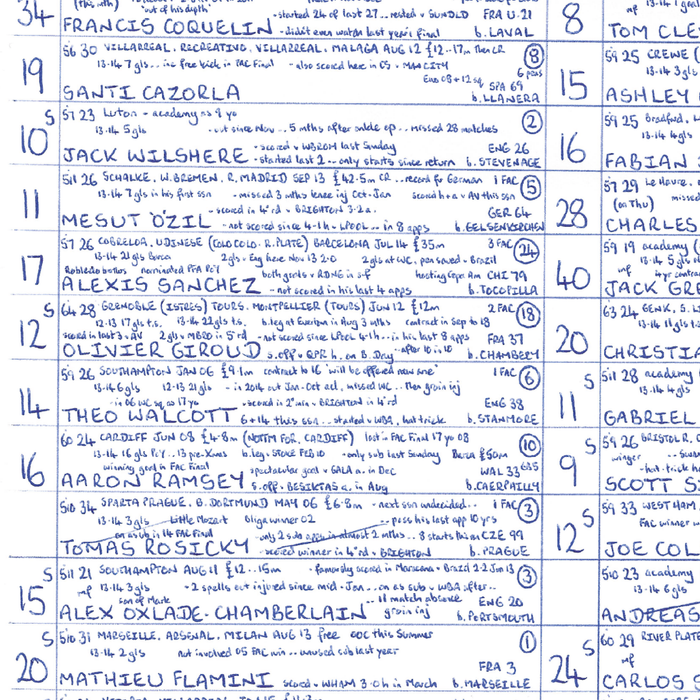 34
"out of his depth" - started 24 of last 27.. rested v SUNDLD FRA U.21
FRANCIS COQUELIN - didn't even watch last year's final b. LAVAL
19
5'6 30 VILLARREAL. RECREATIVO. VILLARREAL. MALAGA AUG 12 £12..17m then CR
13.14 7gls... inc free kick in FAC Final - also scored here in CS v MAN CITY 8
6 pens
Euro 08 + 12 sq, SPA 69
SANTI CAZORLA b. LLANERA
S
10
5'7 23 Luton - academy as 9 yo
13.14 5 gls - out since Nov .. 5 mths after ankle op .. missed 28 matches 2
- scored v WBROM last Sunday ENG 26
JACK WILSHERE - started last 2.. only starts since return b. STEVENAGE
11
5'11 26 SCHALKE, W.BREMEN, R. MADRID SEP 13 £42.5m CR.. record for German 1 FAC 5
13.14 7 gls in his first ssn - missed 3 mths knee inj Oct-Jan scored h+a v AV this ssn
- scored in 4'rd v BRIGHTON 3.2 a. GER 64
MESUT OZIL - not scored since 4-1 h v LPOOL.. in 8 apps b. GELSENKIRCHEN
17
5'7 26 COBRELOA, UDINESE (COLO COLO. R. PLATE) BARCELONA JUL 14 £35m 3 FAC 24
13.14 21 gls Barca 2gls v Eng here Nov 13 2.0 2 gls at WC, pen saved v Brazil
nominated PFA PoY both goals v RDNG in s-f hosting Copa Am CHI 79
ALEXIS SANCHEZ - not scored in his last 4 apps b. TOCOPILLA
S
12
6'4 28 GRENOBLE (ISTRES) TOURS. MONTPELLIER (TOURS) JUN 12 £12m 2 FAC 18
12.13 17 gls t.s. 13.14 22 gls t.s. b. leg at Everton in Aug 3 mths contract in Sep to 18
scored in last 3 v AV 2gls v MBRO in 5'rd - not scored since LPOOL 4-1h.. in his last 8 apps FRA 37
OLIVIER GIROUD s.off v QPR h. on B. Day - after 10 in 10 b. CHAMBERY
14
5'9 26 SOUTHAMPTON JAN 06 £9.1m contract to 16 "will be offered new one" 1 FAC 6
13.14 6 gls 12.13 21 gls - in 2014 out Jan-Oct acl, missed WC .. then groin inj
- in 06 WC sq as 17 yo - scored in 2'min v BRIGHTON in 4'rd ENG 38
THEO WALCOTT 6+14 this ssn.. started v WBA, hat trick b. STANMORE
16
6'0 24 CARDIFF JUN 08 £4.8m (NOTTM FOR. CARDIFF) lost in FAC Final 17 yo 08 10
13.14 16 gls PoY.. 13 pre-Xmas b. leg v STOKE FEB 10 - only sub last Sunday £50m
winning goal in FAC Final spectacular goal v GALA a. in Dec WAL 33
AARON RAMSEY s.off v BESIKTAS a. in Aug b. CAERPHILLY
5'10 34 SPARTA PRAGUE. B. DORTMUND MAY 06 £6.8m - next ssn undecided.. 1 FAC 3
13.14 3gls Little Mozart Oliga winner 02 .. poss his last app 10 yrs
on as sub in 14 FAC Final - only 2 sub apps in almost 2 mths.. 8 starts this ssn CZE 99
TOMAS ROSICKY - scored winner in 4'rd v BRIGHTON b. PRAGUE
S
15
5'11 21 SOUTHAMPTON AUG 11 £12..15m - famously scored in Maracana v Brazil 2.2 Jun 13 3
mf 13.14 3 gls - 2 spells out injured since mid-Jan... on as sub v WBA after..
son of Mark .. 11 match absence ENG 20
ALEX OXLADE-CHAMBERLAIN groin inj b. PORTSMOUTH
S
20
5'10 31 MARSEILLE, ARSENAL. MILAN AUG 13 free ooc this Summer 1
13.14 2gls not involved 05 FAC win .. unused sub last year
FRA 3
MATHIEU FLAMINI scored v WHAM 3.0 h in March b. MARSEILLE
8
TOM CLE
15
5'9 25 CREWE (
13.14 3 gls
ASHLEY
16
5'9 25 Bradford, L
13.14 4gls
FABIAN
28
5'7 29 Le Havre.
(on Thu) missed
CHARLES
40
5'9 19 academy (
13.14 5 gls
mf 4yr contract
JACK GRE
20
6'3 24 GENK, S. L
13.14 11 gls
CHRISTIA
S
11
5'11 28 academy
13.14 4gls
GABRIEL
S
9
5'9 26 BRISTOL R.
winger
- hat-trick h
SCOTT S
S
12
5'9 33 WEST HAM
FAC winner
JOE COL
5'10 23 academy
13.14 6 gls
ANDREAS
S
24
6'0 29 RIVER PLATE
mf
CARLOS